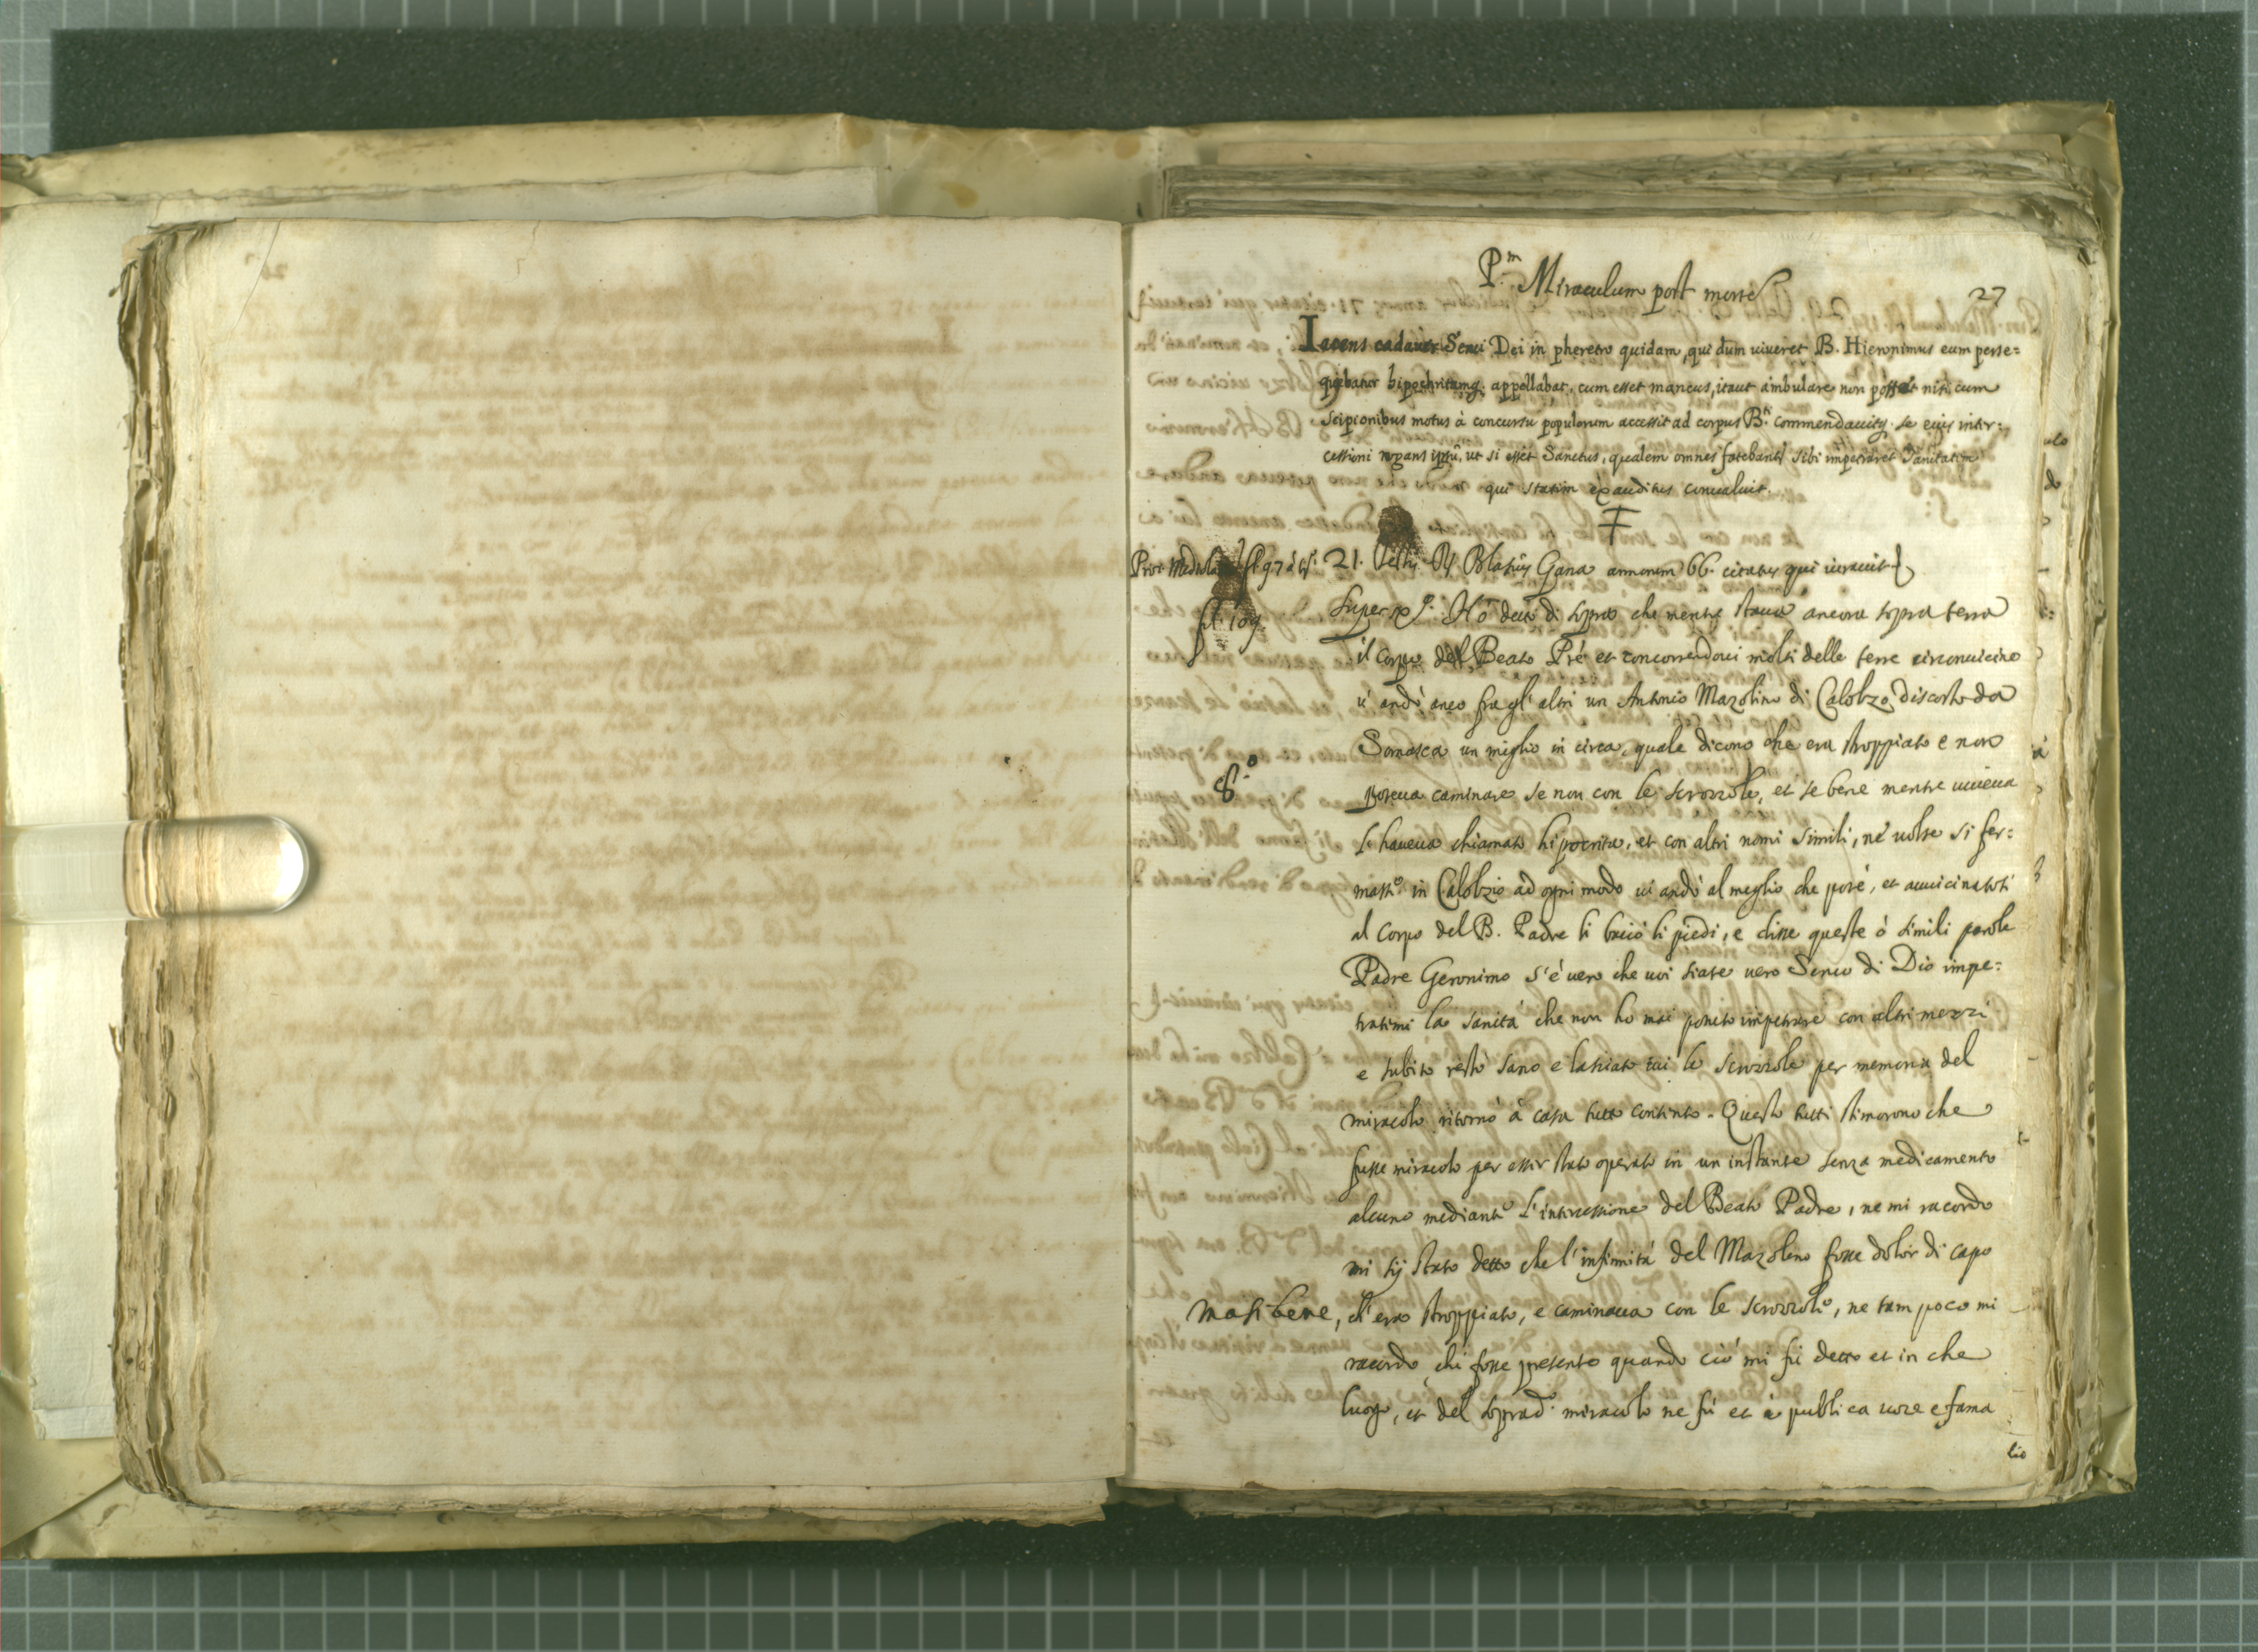 P.m Miraculum post morte
27
Iacens cadauer Serui Dei in pheretro quidam, qui dum uiueret B. Hieronimus eum perse=
quebatur hipochritamq. appellabat, cum esset mancus, itaut ambulare non posset nisi cum
Scipionibus motus à concursu populorum accessit ad corpus B.ti commendauitq. se eius inter=
cessioni rogans ipsū, ut si esset Sanctus, qualem omnes fatebant sibi impetraret Sanitatem
qui statim exauditus conualuit.
fl. 97 21. Testis Blasius Gana annorum 66. citatus qui iurauit
fl. 109.
Super Hò detto di sopra che mentre staua ancora sopra terra
il corpo del Beato Prē et concorrendoui molti delle terre circonuicine
u' andò anco fra gl' altri un Antonio Mazolino di Calolzo, discosto da
Somasca un miglio in circa, quale dicono che era stroppiato e non
8.o
poteua caminare se non con le scrozzole, et se bene mentre uiueua
l' haueua chiamato hipocrita, et con altri nomi simili, nè uolse si fer=
mass.o in Calolzio ad ogni modo ui andò al meglio che potè, et auuicinatosi
al corpo del B. Padre li baciò li piedi, e disse queste ò simili parole
Padre Geronimo s' è uero che uoi siate uero Seruo di Dio impe=
tratimi la sanità che non ho mai potuto impetrare con altri mezzi
e subito restò sano e lasciato iui le scrozzole per memoria del
miracolo ritornò à casa tutto contento. Questo tutti stimorono che
fusse miracolo per esser stato operato in un instante senza medicamento
alcuno mediante l' intercessione del Beato Padre, ne mi racordo
mi sij stato detto che l' infirmità del Mazoleno fosse dolor di capo
ma si bene, ch' era stroppiato, e caminaua con le scrozzole, ne tam poco mi
racordo chi fosse presente quando ciò mi fù detto et in che
luogo, et del soprad.o miracolo ne fù et è publica uoce e fama